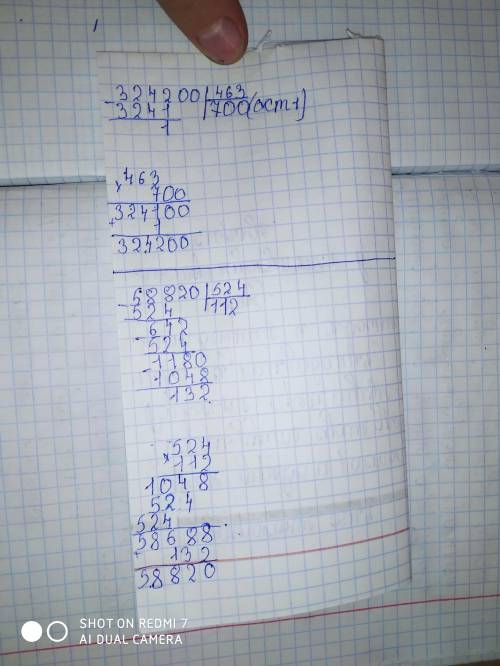 -324200|463
3241 |700(ост1)
1
×463
700
324100
+ 1
324200
-58820|524
524 |112
-642
524
-1180
1048
132
×524
112
1048
524
524
58688
+ 132
58820
SHOT ON REDMI 7
AI DUAL CAMERA